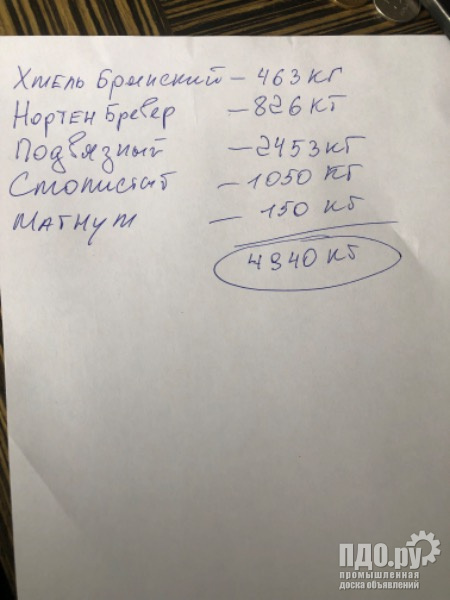 Хмель Брянский – 463 кг
Нортен Бревер – 826 кг
Подвязный – 2453 кг
– 1050 кг
Магнум – 150 кг
4940 кг
ПДО.ру
промышленная
доска объявлений